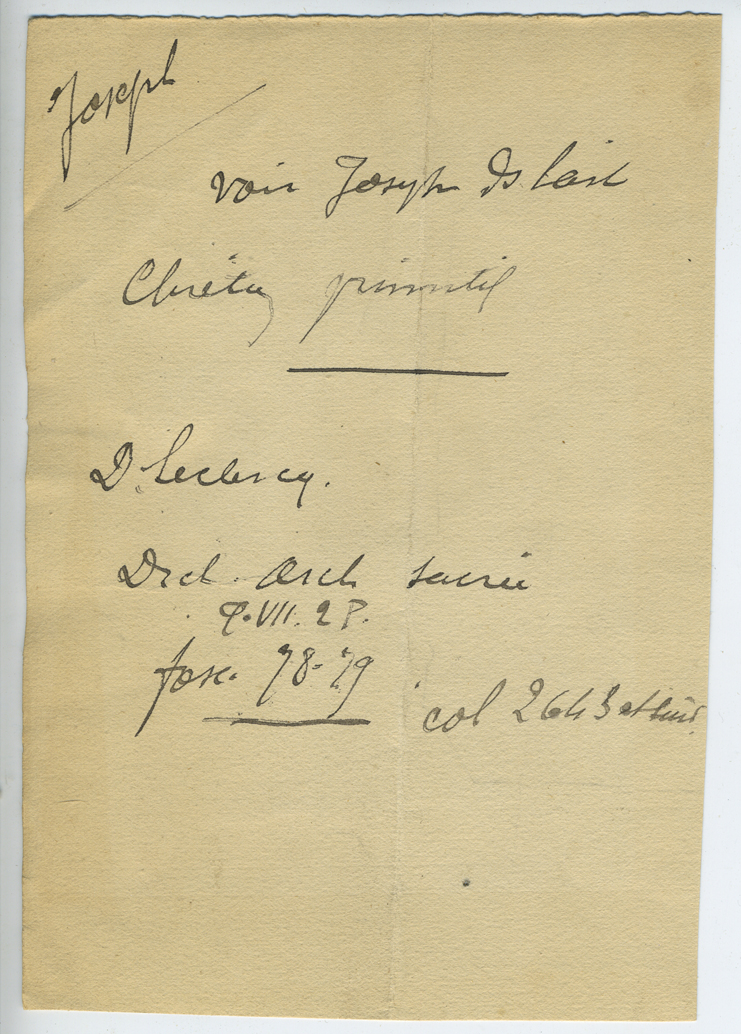 Joseph
voir Joseph Ds l'art
Chrétien primitif
D. Leclercq.
Dict. Arch sacrée
T. VII. 2 P.
fasc. 78-79
col 2643 et suiv.